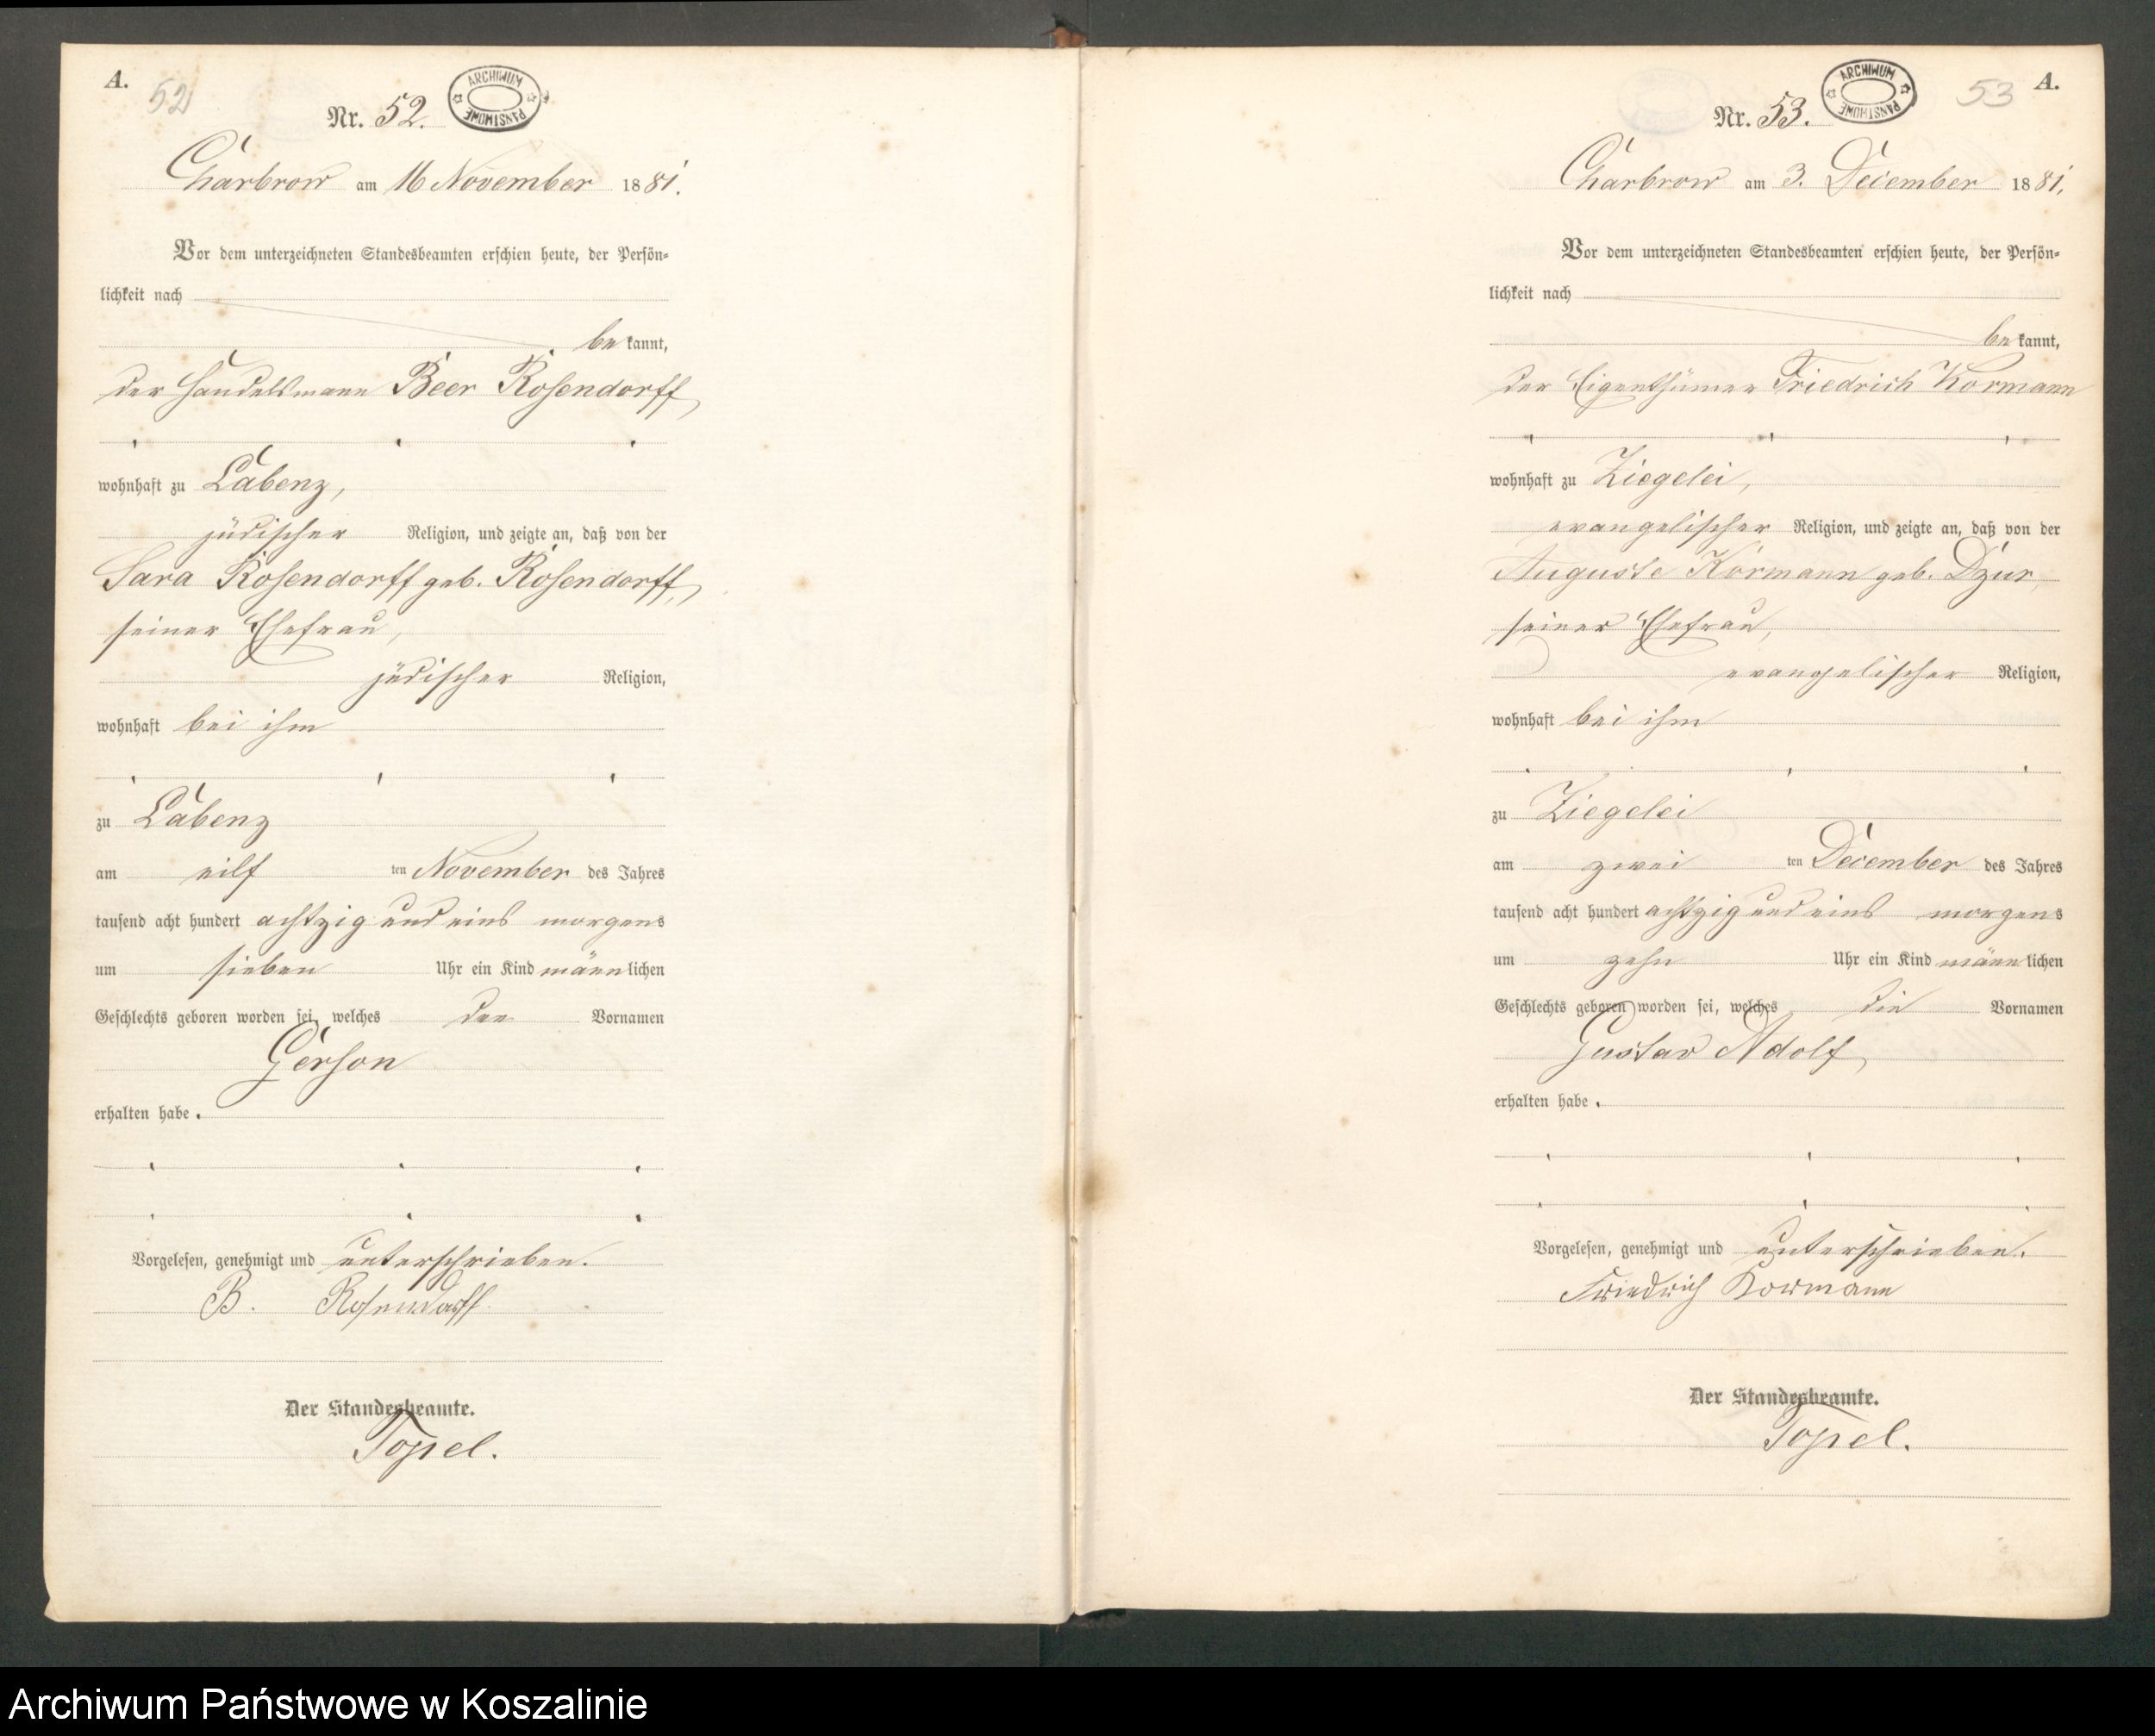 A.
52
Nr. 52.
ARCHIWUM PAŃSTWOWE
Charbrow am 16 November 1881.
Vor dem unterzeichneten Standesbeamten erschien heute, der Persön-
lichkeit nach
bekannt,
der Handelsmann Beer Rosendorff,
wohnhaft zu Labenz,
jüdischer Religion, und zeigte an, daß von der
Sara Rosendorff geb. Rosendorff,
seiner Ehefrau,
jüdischer Religion,
wohnhaft bei ihm
zu Labenz
am eilf ten November des Jahres
tausend acht hundert achtzig und eins morgens
um sieben Uhr ein Kind männlichen
Geschlechts geboren worden sei, welches den Vornamen
Gerson
erhalten habe.
Vorgelesen, genehmigt und unterschrieben.
B. Rosendorff
Der Standesbeamte.
Topel.
53
A.
Nr. 53.
ARCHIWUM PAŃSTWOWE
Charbrow am 3. December 1881.
Vor dem unterzeichneten Standesbeamten erschien heute, der Persön-
lichkeit nach
bekannt,
der Eigenthümer Friedrich Kormann
wohnhaft zu Ziegelei,
evangelischer Religion, und zeigte an, daß von der
Auguste Kormann geb. Dzur,
seiner Ehefrau,
evangelischer Religion,
wohnhaft bei ihm
zu Ziegelei
am zwei ten December des Jahres
tausend acht hundert achtzig und eins morgens
um zehn Uhr ein Kind männlichen
Geschlechts geboren worden sei, welches die Vornamen
Gustav Adolf
erhalten habe.
Vorgelesen, genehmigt und unterschrieben.
Friedrich Kormann
Der Standesbeamte.
Topel.
Archiwum Państwowe w Koszalinie